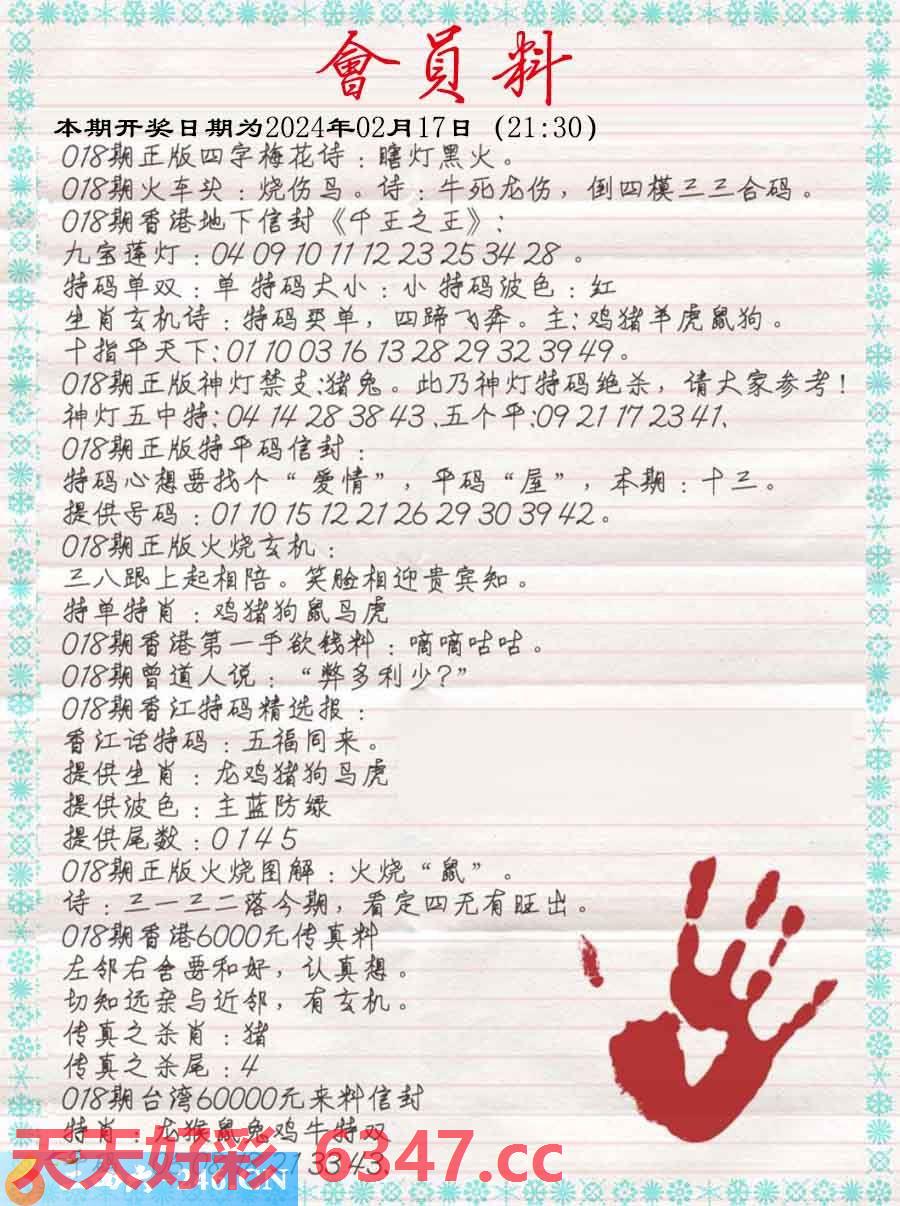 會員料
本期开奖日期为2024年02月17日 (21:30)
018期正版四字梅花诗：瞎灯黑火。
018期火车头：烧伤鸟。诗：牛死龙伤，倒四模三三合码。
018期香港地下信封《千王之王》:
九宝莲灯：04 09 10 11 12 23 25 34 28 。
特码单双：单 特码大小：小 特码波色：红
生肖玄机诗：特码买单，四蹄飞奔。主: 鸡猪羊虎鼠狗。
十指平天下: 01 10 03 16 13 28 29 32 39 49。
018期正版神灯禁支:猪兔。此乃神灯特码绝杀，请大家参考！
神灯五中特: 04 14 28 38 43 、五个平:09 21 17 23 41、
018期正版特平码信封：
特码心想要找个“爱情”，平码“屋”，本期：十三。
提供号码：01 10 15 12 21 26 29 30 39 42。
018期正版火烧玄机：
三八跟上起相陪。笑脸相迎贵宾知。
特单特肖：鸡猪狗鼠马虎
018期香港第一手欲钱料：嘀嘀咕咕。
018期曾道人说：“弊多利少？”
018期香江特码精选报：
香江话特码：五福同来。
提供生肖：龙鸡猪狗马虎
提供波色：主蓝防绿
提供尾数：0 1 4 5
018期正版火烧图解：火烧“鼠”。
诗：三一三二落今期，看定四无有旺出。
018期香港6000元传真料
左邻右舍要和好，认真想。
切知远亲与近邻，有玄机。
传真之杀肖：猪
传真之杀尾：4
018期台湾60000元来料信封
特肖：龙猴鼠兔鸡牛特双
天天好彩 6347.cc
13 43
246.CN